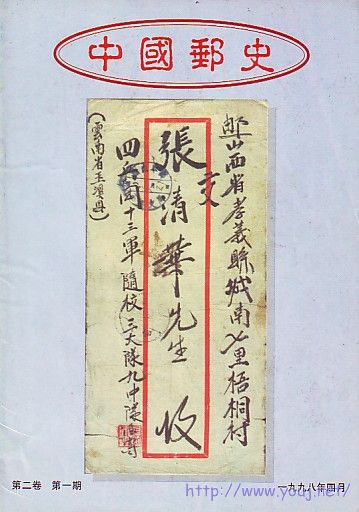 中國郵史
郵山西省孝義縣城南七里梧桐村
交
張清華先生 收
四兵團十三軍隨校三大隊九中隊
（雲南省玉溪县）
第二卷 第一期
一九九八年四月
http://www.youj.net/